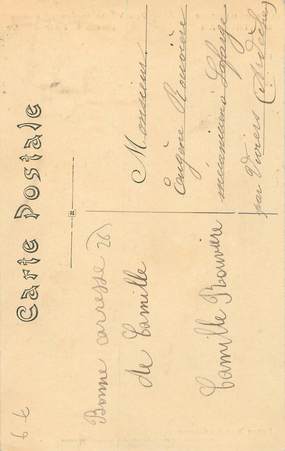 Carte Postale
Bonne carresse
de Camille
Camille Rouvière
Monsieur
Eugène Rouvière
mécanicien Lafarge
par Viviers (Ardèche)